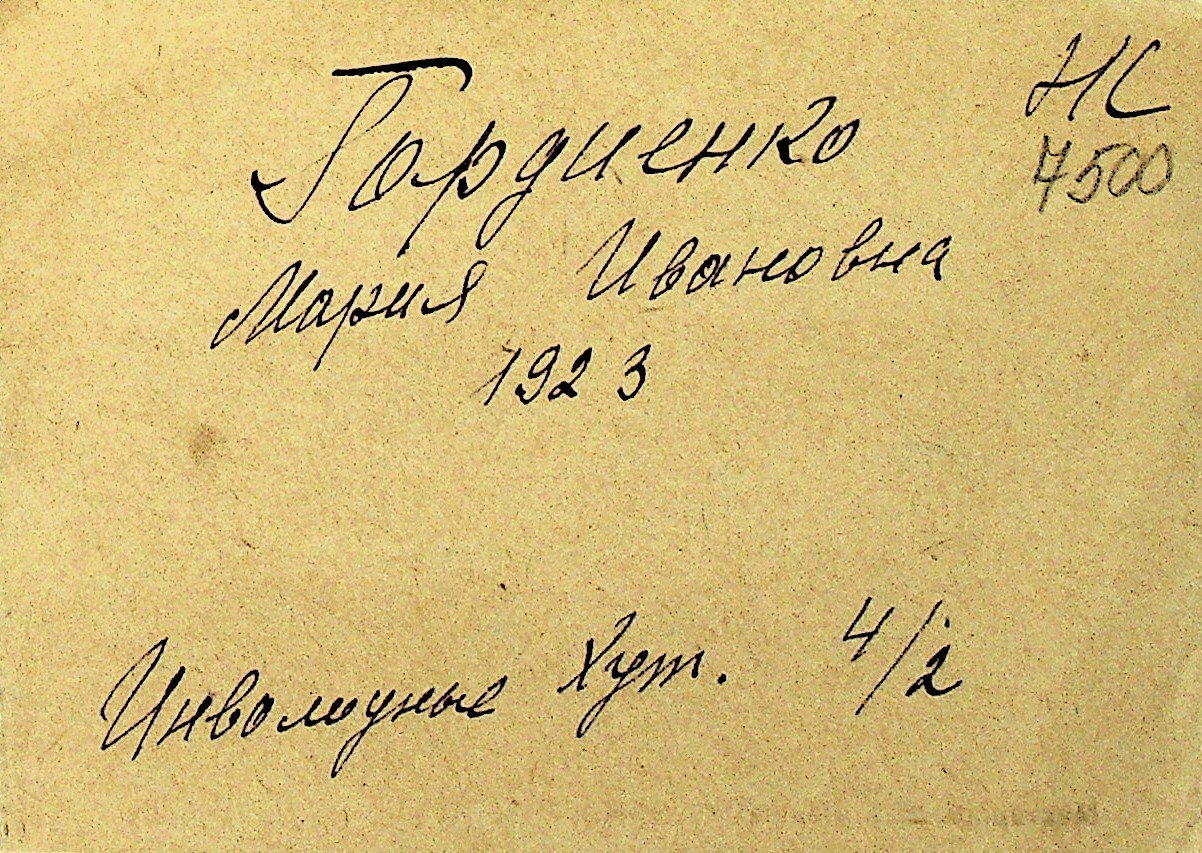 НС
7500
Гордиенко
Мария Ивановна
1923
Хут. 4/2